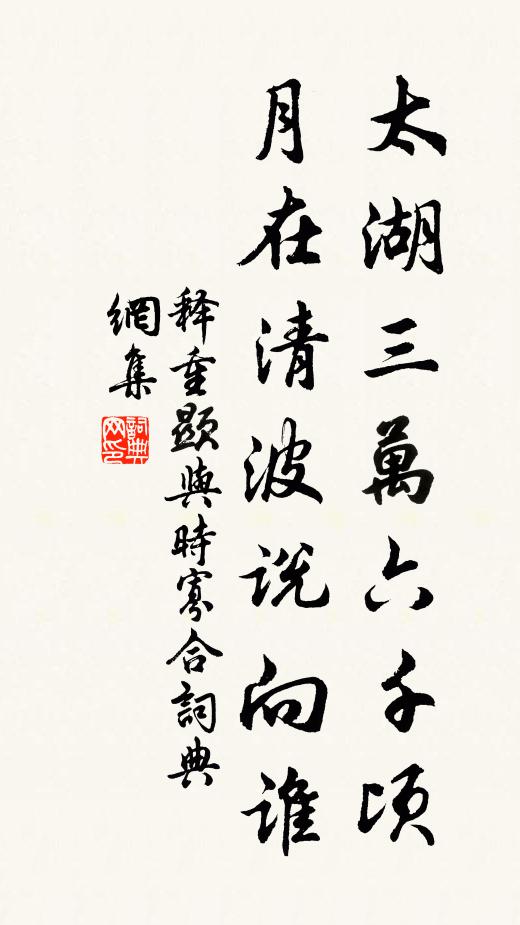 太湖三萬六千頃
月在清波説向誰
释重顯與時寡合詞典
網集
詞典網印